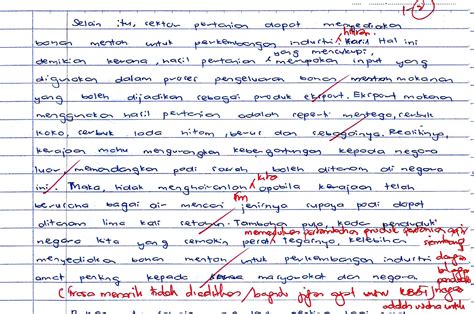 1-2
Selain itu, sektor pertanian dapat menyediakan
bahan mentah untuk perkembangan industri hiliran. Hal ini
demikian kerana, hasil pertanian yang mencukupi, merupakan input yang
digunakan dalam proses pengeluaran bahan mentah makanan
yang boleh dijadikan sebagai produk eksport. Eksport makanan
menggunakan hasil pertanian adalah seperti mentega, serbuk
koko, serbuk lada hitam, beras dan sebagainya. Realitinya,
kerajaan mahu mengurangkan kebergantungan kepada negara
luar memandangkan padi sawah boleh ditanam di negara
ini. Maka, tidak menghairankan kita apabila kerajaan telah
berusaha bagai air mencari jenirnya supaya padi dapat
ditanam lima kali setahun. Tambahan pula, kadar penduduk
negara kita yang semakin pesat, tegasnya, kelebihan
memerlukan pertambahan produk pertanian
menyediakan bahan mentah untuk perkembangan industri
amat penting kepada masyarakat dan negara.
(frasa menarik tidak diadilkan / bagus